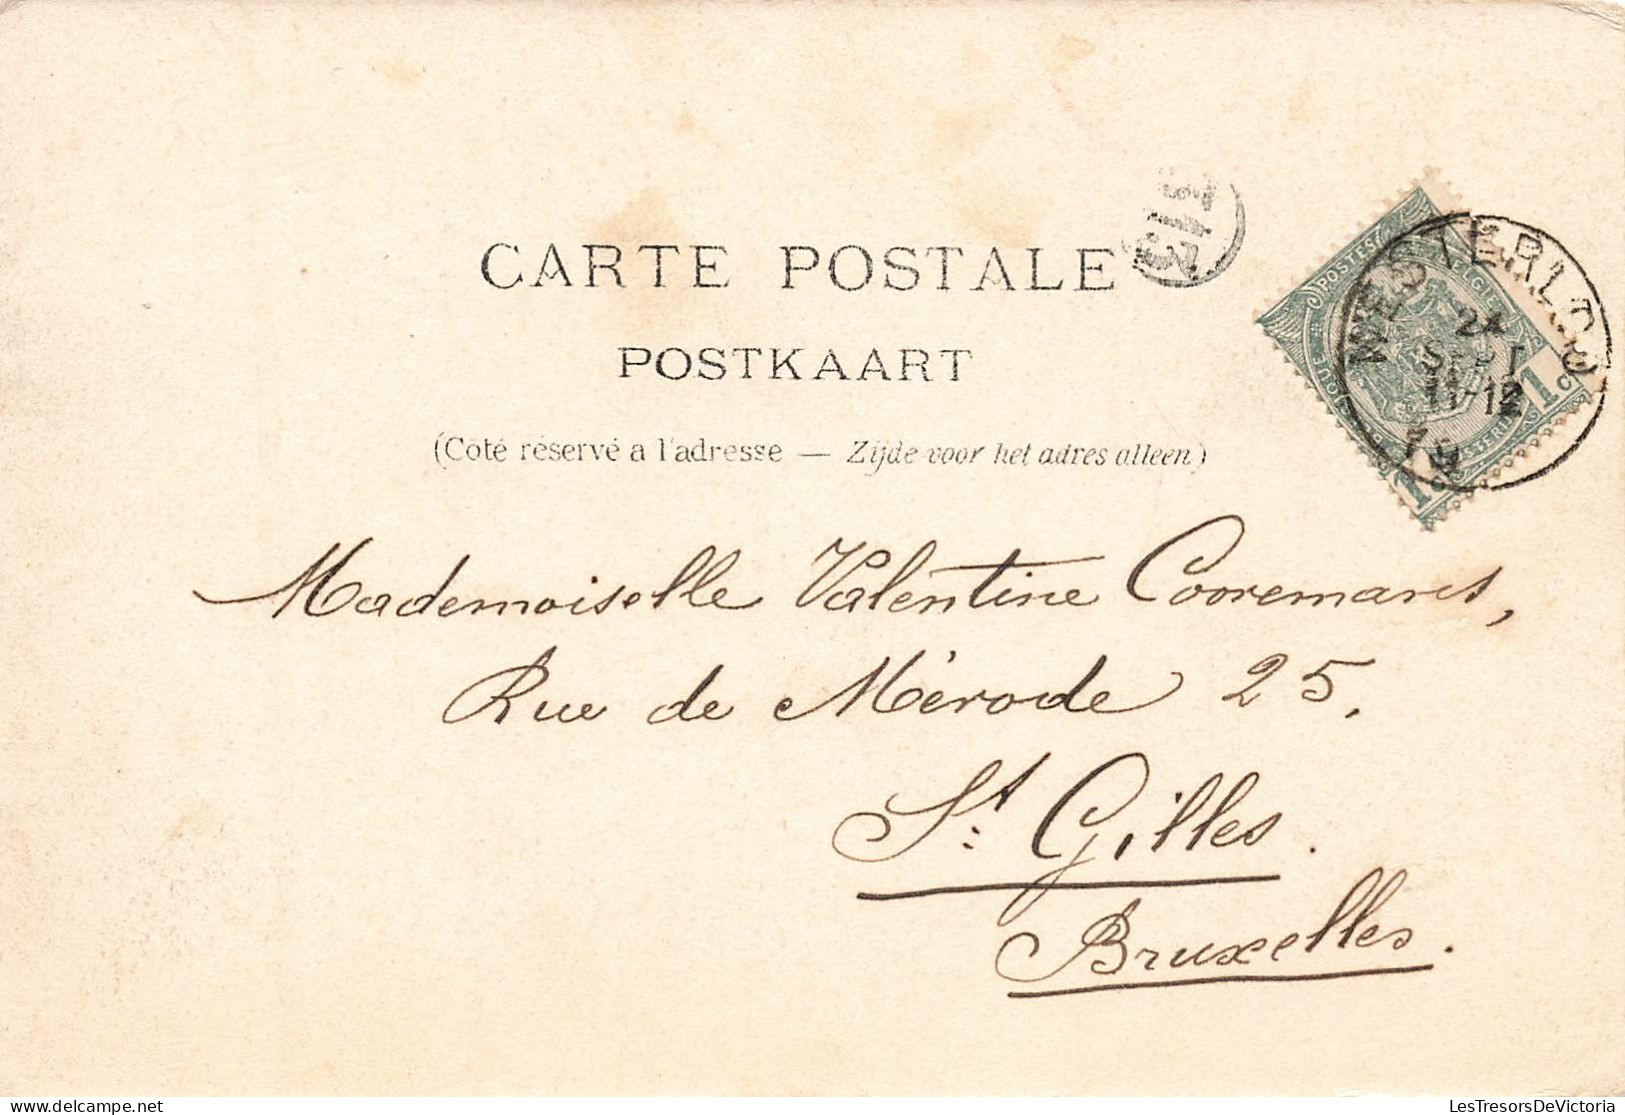 CARTE POSTALE
POSTKAART
(Côté réservé a l'adresse — Zijde voor het adres alleen)
POSTES
1c
1
WESTERLOO
SEPT
11-12
Mademoiselle Valentine Cooremans,
Rue de Mérode 25.
St. Gilles.
Bruxelles.
www.delcampe.net
LesTresorsDeVictoria